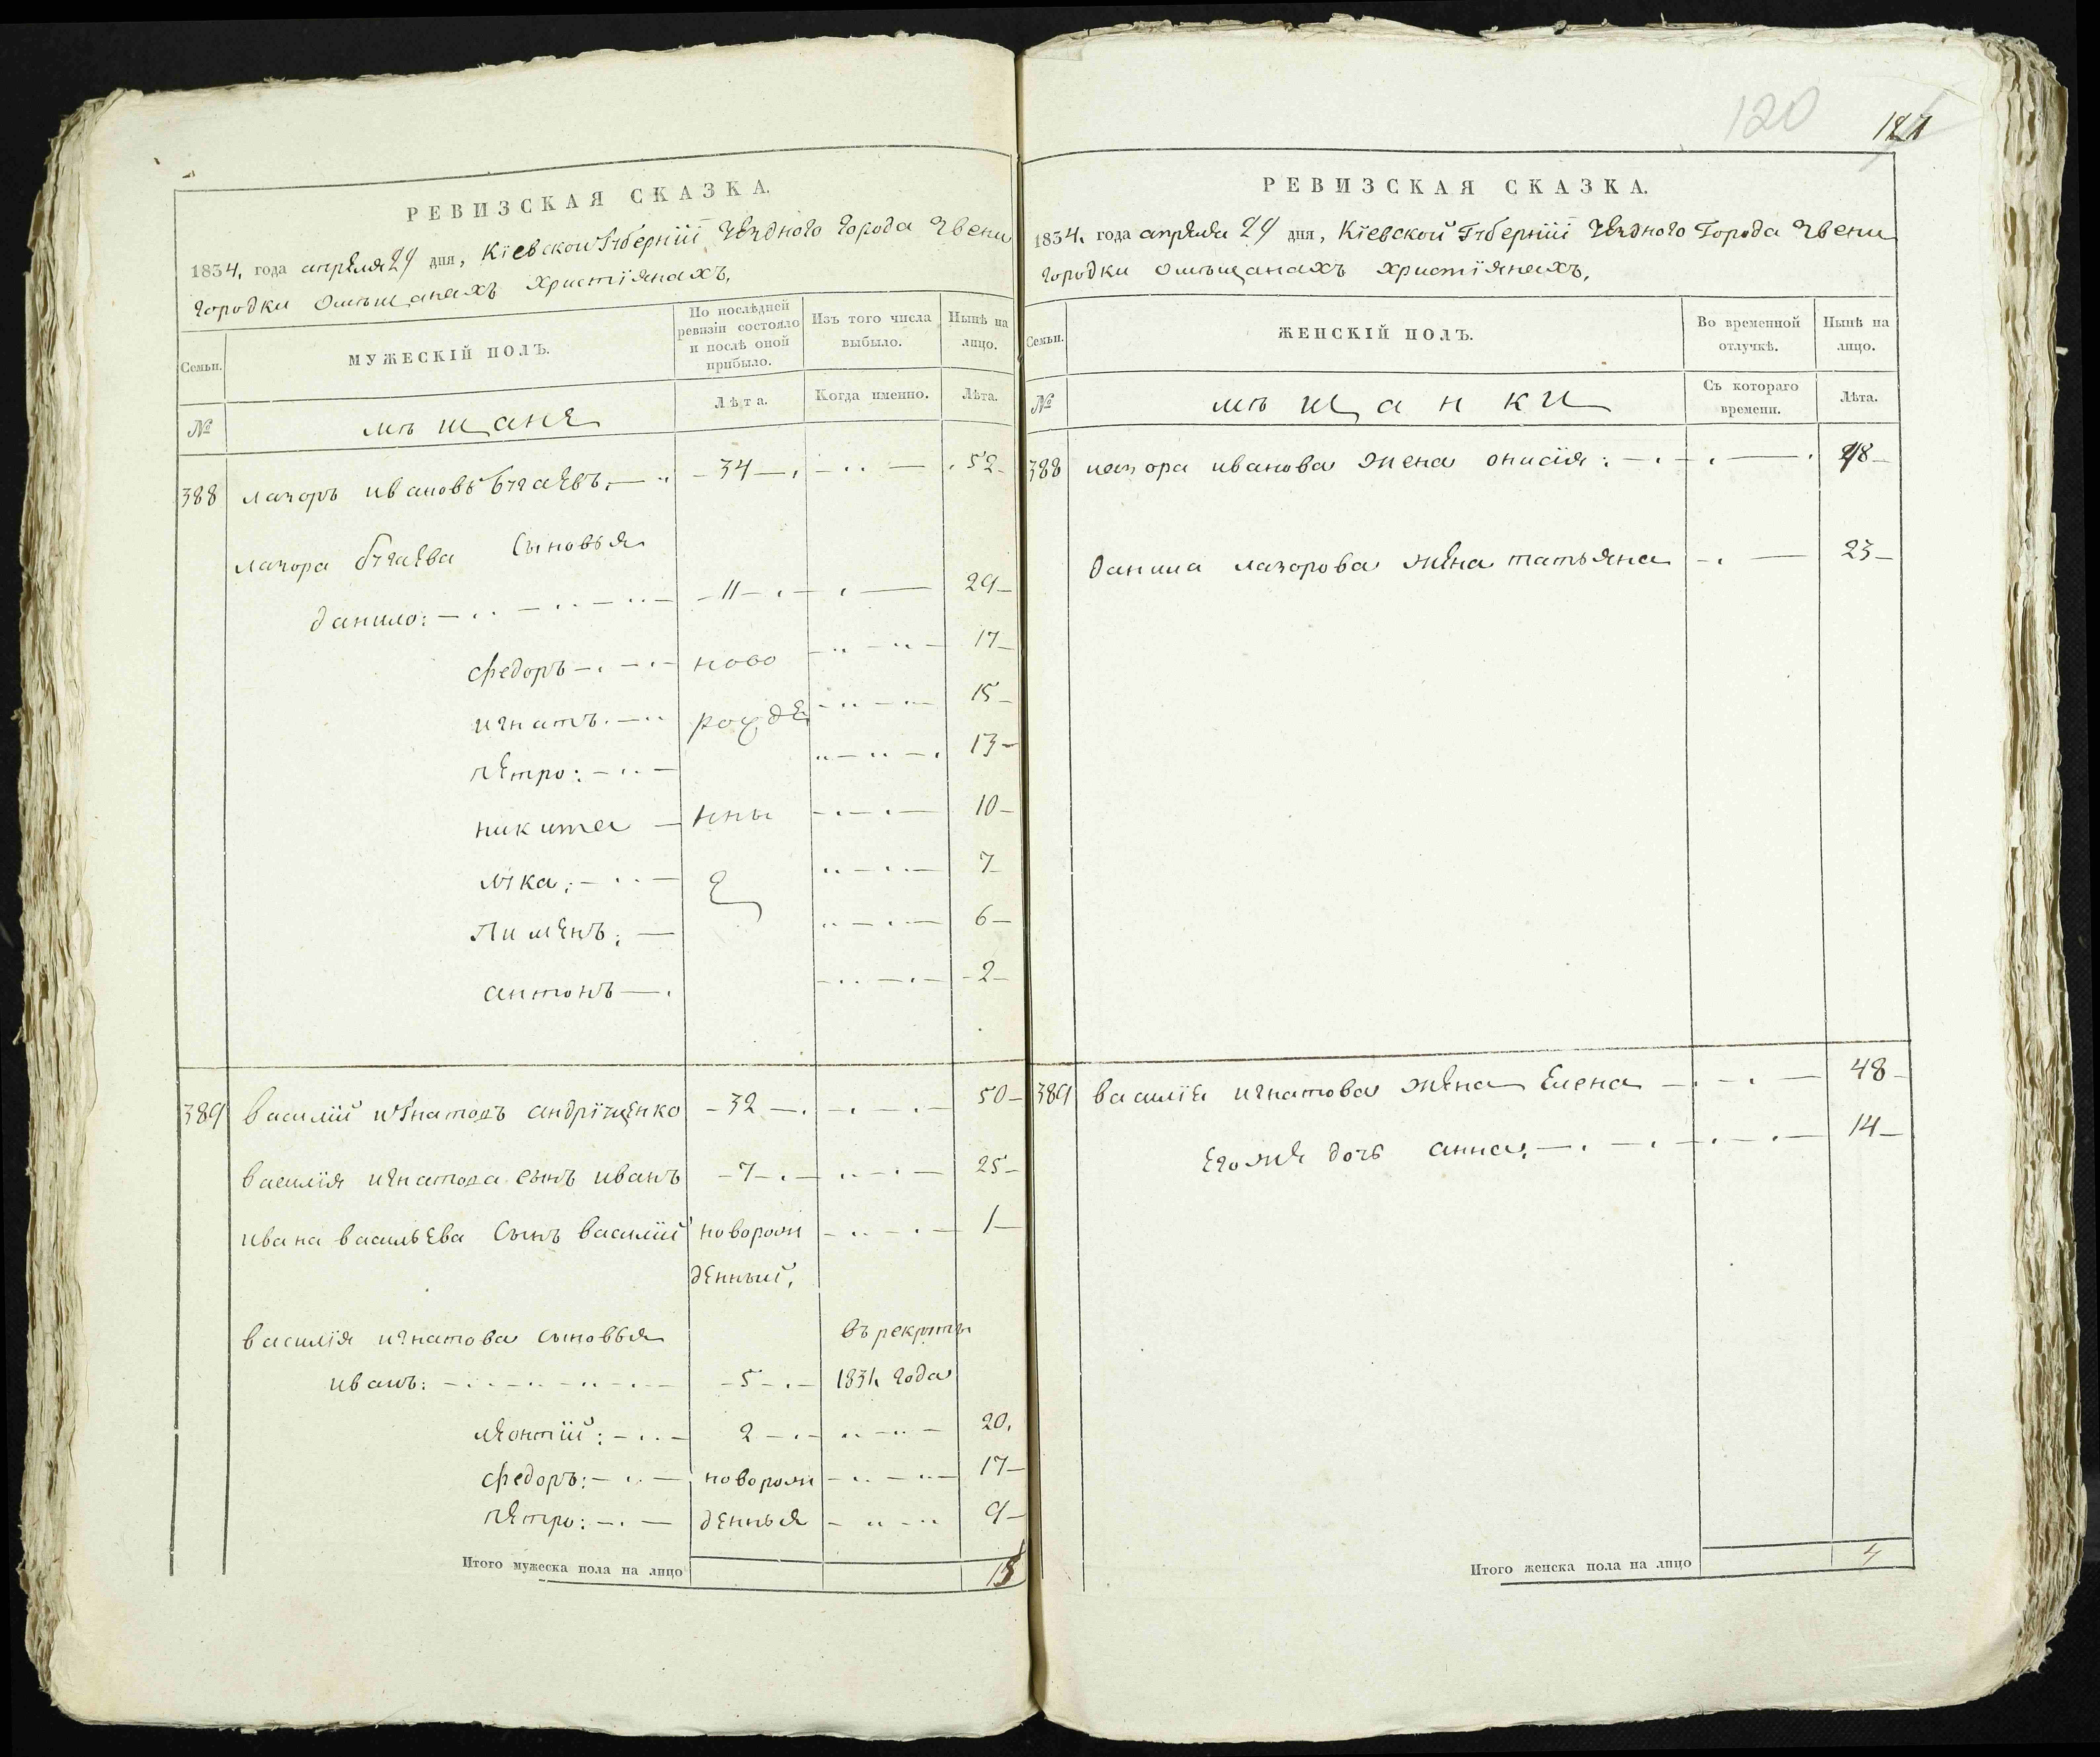 РЕВИЗСКАЯ СКАЗКА.
1834. года апреля 24 дня, Кіевской Губерніи Уездного Города Звени
городки омъщанахъ христіянахъ,
Семьи.
МУЖЕСКІЙ ПОЛЪ.
По послѣдней ревизіи состояло и послѣ оной прибыло.
Изъ того числа выбыло.
Нынѣ на лицо.
№
мъщане
Лѣта.
Когда именно.
Лѣта.
388 лазоръ ивановъ бугаевъ. 34 52
лазора бугаева сыновья
данило: 11 29
федоръ ново 17
игнатъ. рожде 15
петро: 13
никита нны 10
лука: е 7
пименъ: 6
антонъ 2
389 василій игнатовъ андріущенко 32 50
василія игнатова сынъ иванъ 7 25
ивана васильева сынъ василій новорож 1
денный,
василія игнатова сыновья въ рекруты
иванъ: 5 1831 года
леонтій: 2 20.
федоръ: новорож 17
петро: денныя 9
Итого мужеска пола на лицо 13
120
121
РЕВИЗСКАЯ СКАЗКА.
1834. года апреля 24 дня, Кіевской Губерніи Уездного Города Звени
городки омъщанахъ христіянахъ,
Семьи.
ЖЕНСКІЙ ПОЛЪ.
Во временной отлучкѣ.
Нынѣ на лицо.
№
мъщанки
Съ котораго времени.
Лѣта.
388 лазора иванова жена онисія: 48
данила лазорова жена татьяна 23
389 василія игнатова жена елена 48
егожя дочь анна. 14
Итого женска пола на лицо 4